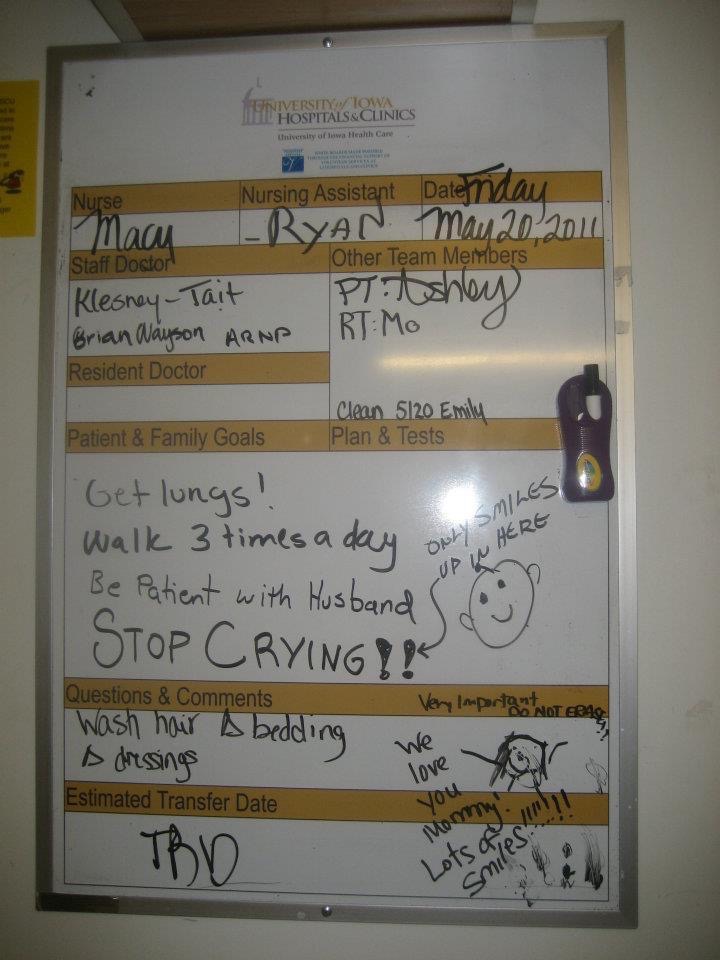 UNIVERSITY of IOWA
HOSPITALS & CLINICS
University of Iowa Health Care
Nurse
Nursing Assistant
Date Friday
Macy
- RYAN
May 20, 2011
Staff Doctor
Other Team Members
Klesney-Tait
PT: Ashley
Brian Wayson ARNP
RT: Mo
Resident Doctor
Clean 5/20 Emily
Patient & Family Goals
Plan & Tests
Get lungs!
Walk 3 times a day
Be Patient with Husband
STOP CRYING!!
ONLY SMILES
UP IN HERE
Questions & Comments
Very Important
DO NOT ERASE
Wash hair Δ bedding
Δ dressings
We
love
you
Mommy!
Lots of
Smiles
Estimated Transfer Date
TBD